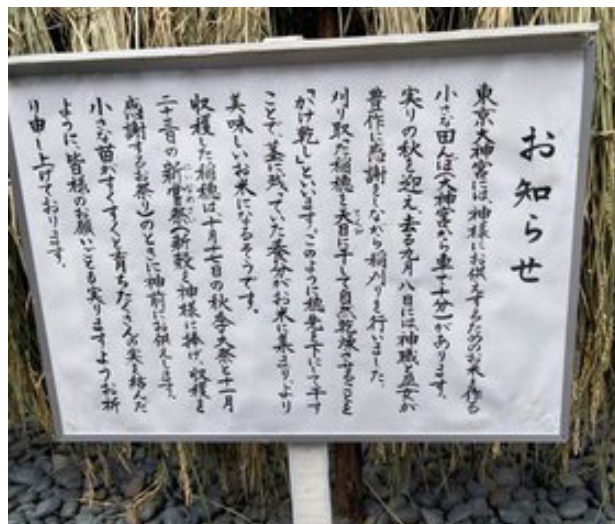 お知らせ
東京大神宮には、神様にお供えするためのお米を作る
小さな田んぼ(大神宮から車で十分)があります。
実りの秋を迎え、去る九月八日には神職と巫女が
豊作に感謝をしながら稲刈りを行いました。
刈り取った稲穂を天日に干して自然乾燥させることを
「かけ干し」といいます。このように穂先を下にして干す
ことで、茎に残っていた養分がお米に集まり、より
美味しいお米になるそうです。
収穫した稲穂は十月十七日の秋季大祭と十一月
二十三日の新嘗祭(新穀を神様に捧げ、収穫を
感謝するお祭り)のときに神前にお供えします。
小さな苗がすくすくと育ちたくさんの実を結んだ
ように、皆様のお願いごとも実りますようお祈
り申し上げております。